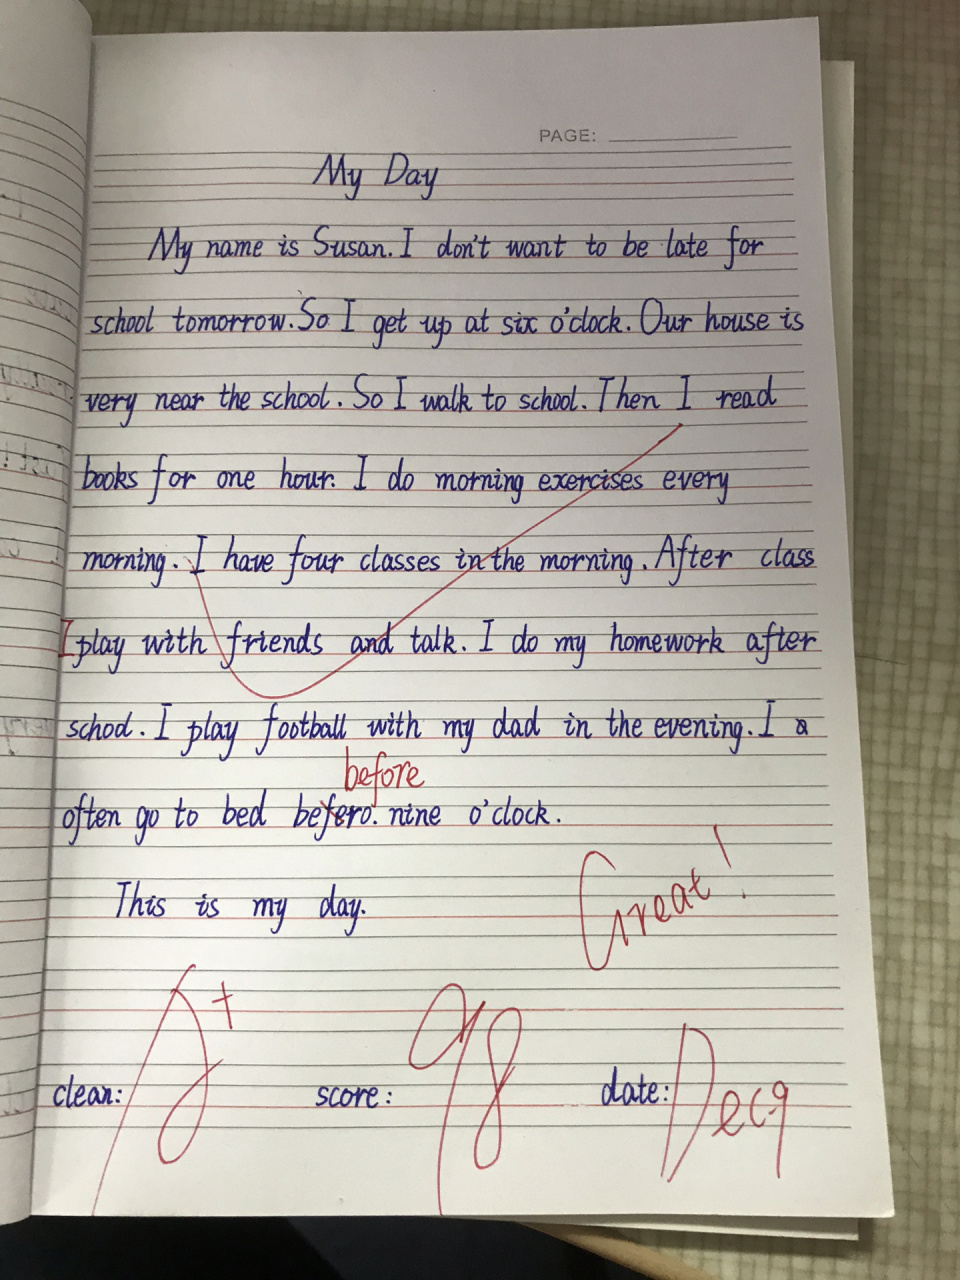 PAGE:
My Day
My name is Susan. I don't want to be late for
school tomorrow. So I get up at six o'clock. Our house is
very near the school. So I walk to school. Then I read
books for one hour. I do morning exercises every
morning. I have four classes in the morning. After class
I play with friends and talk. I do my homework after
school. I play football with my dad in the evening. I a
before
often go to bed befero. nine o'clock.
This is my day.
Great!
clean: A+ score: 98 date: Dec 9